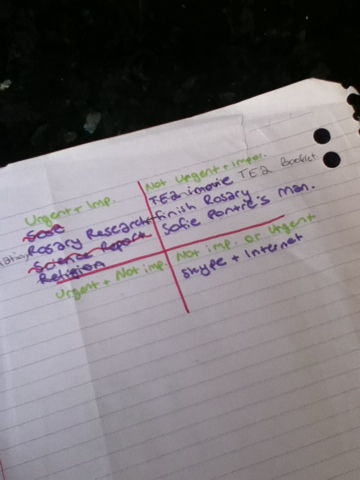 Urgent + Imp.
SOSE
Rosary Research
Science Report
Religion
Not Urgent + Impor.
TE2 imovie TE2 Booklet
Finish Rosary
Sofie Pontre's man.
Urgent + Not imp.
Not imp. or Urgent
Skype + Internet